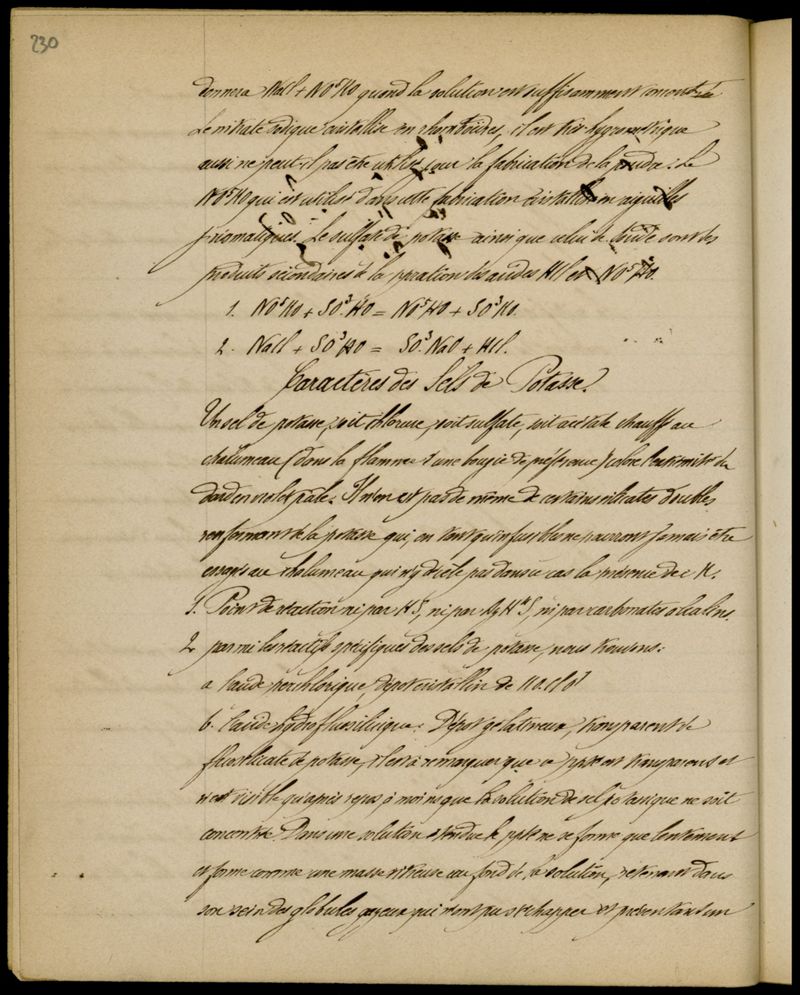 230
donnera NaCl + NO⁵KO quand la solution est suffisamment concentrée
Le nitrate sodique cristallise en rhomboïdes, il est très hygrométrique
aussi ne peut-il pas être utilisé pour la fabrication de la poudre : Le
NO⁵KO qui est utilisé dans cette fabrication cristallise en aiguilles
prismatiques. Le sulfate de potasse ainsi que celui de soude sont les
produits secondaires de la des acides HCl et NO⁵HO.
1. NO⁵KO + SO³HO = NO⁵HO + SO³KO.
2. NaCl + SO³HO = SO³NaO + HCl.
Caractères des Sels de Potasse.
Un sel de potasse, soit chlorure, soit sulfate, soit acétate chauffé au
chalumeau (dans la flamme d'une bougie de préférence) colore l'extrémité du
dard en violet pâle. Il n'en est pas de même de certains nitrates doubles
renfermant de la potasse qui, en tant qu'infusibles ne pourront jamais être
au chalumeau qui n'y décèle pas dans ce cas la présence de K.
1. Point de réaction ni par HS, ni par AzH⁴S, ni par carbonates alcalins.
2. parmi les réactifs spécifiques des sels de potasse, nous trouvons :
a l'acide perchlorique, dépot cristallin de
b. l'acide hydrofluosilicique. Dépot gélatineux, transparent de
fluosilicate de potasse, il est à remarquer que ce ppté est transparent et
n'est visible qu'après repos, à moins que la solution de sel potassique ne soit
concentrée. Dans une solution étendue le ppté ne se forme que lentement
et forme comme une masse vitreuse au fond de la solution, retenant dans
son sein des globules gazeux qui n'ont pu s'échapper et présentant un